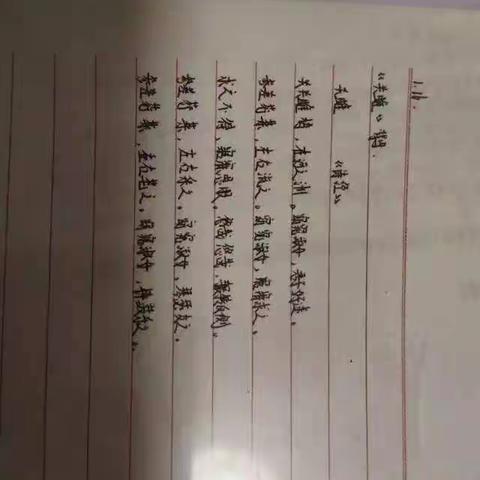 1.16.
《关雎》
关雎 《诗经》
关关雎鸠，在河之洲。窈窕淑女，君子好逑。
参差荇菜，左右流之。窈窕淑女，寤寐求之。
求之不得，寤寐思服。悠哉悠哉，辗转反侧。
参差荇菜，左右采之。窈窕淑女，琴瑟友之。
参差荇菜，左右芼之。窈窕淑女，钟鼓乐之。